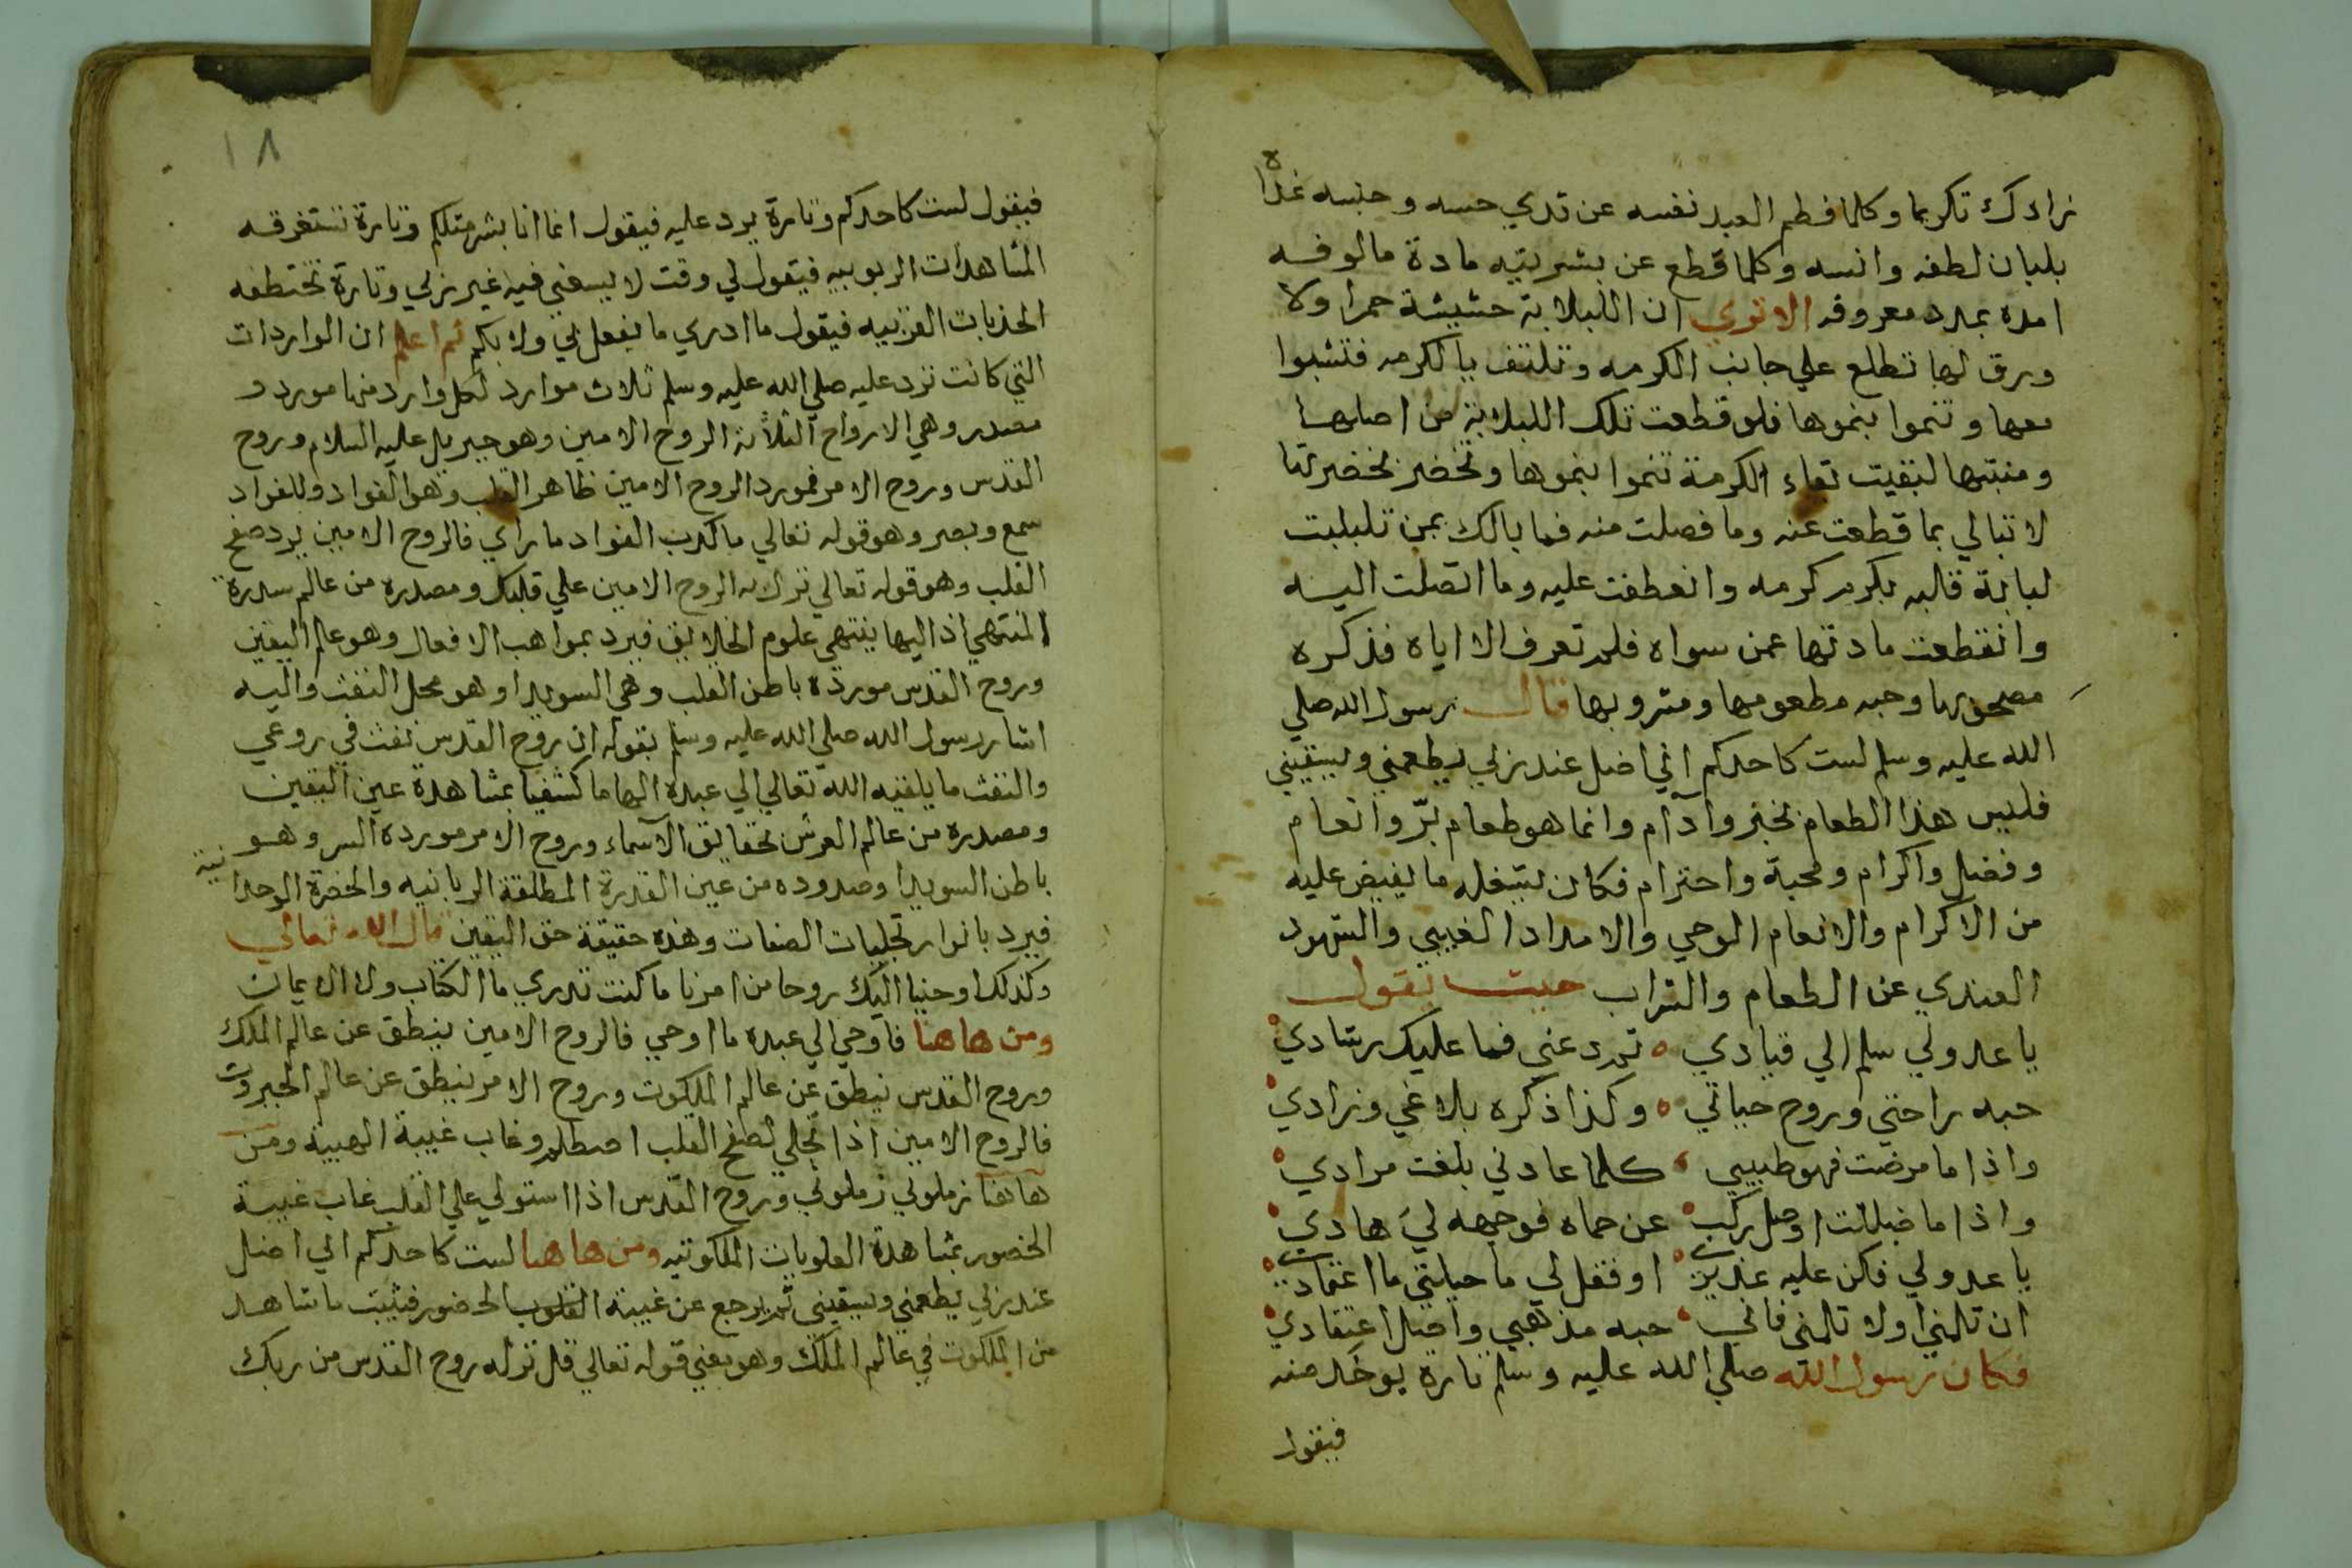 زادك تكريما وكلما فطم العبد نفسه عن ثدي حسه وجنسه غذاه
بلبان لطفه وانسه وكلما قطع عن بشريته مادة مالوفه
امده بمدد معروفه الا تري ان اللبلابة حشيشة حمرا ولا
ورق لها تطلع علي جانب الكرمه وتلتف بالكرمه فتشبوا
معها وتنموا بنموها فلو قطعت تلك اللبلابة من اصلها
ومنبتها لبقيت تعاء الكرمة تنموا بنموها وتخضر بخضرتها
لا تبالي بما قطعت عنه وما فصلت منه فما بالك بمن تلبلبت
لبابة قالبه بكرم كرمه وانعطفت عليه وما اتصلت اليه
وانقطعت مادتها عمن سواه فلم تعرف الا اياه فذكره
وحبه مطعومها ومشروبها قال رسول الله صلي
الله عليه وسلم لست كاحدكم اني اضل عند ربي يطعمني ويسقيني
فليس هذا الطعام بخبز وآدام وانما هو طعام برّ وانعام
وفضل واكرام ومحبة واحترام فكان يشغله ما يفيض عليه
من الاكرام والانعام الوحي والامداد الغيبي والشهود
العندي عن الطعام والشراب حيث يقول
يا عدولي سلم الي قيادي ٥ تمرد عني فما عليك رشادي
حبه راحتي وروح حياتي ٥ وكذا ذكره بلاغي وزادي
واذا ما مرضت فهو طبيبي كلما عادني بلغت مرادي
واذا ما ضللت اوضل ركب عن حماه فوجهه لي هادي
يا عدولي فكن عليه عذيري او فقل لي ما حيلتي ما اعتمادي
ان تلمني اولا تلمني فاني حبه مذهبي واصل اعتقادي
فكان رسول الله صلي الله عليه وسلم تارة يوخذ منه
فيقول
١٨
فيقول لست كاحدكم وتارة يرد عليه فيقول انما انا بشر مثلكم وتارة تستغرقه
المشاهدات الربوبيه فيقول لي وقت لا يسعني فيه غير ربي وتارة تختطفه
الجذبات القربيه فيقول ما ادري ما يفعل بي ولا بكم ثم اعلم ان الواردات
التي كانت ترد عليه صلي الله عليه وسلم ثلاث موارد لكل وارد منها مورد و
مصدر وهي الارواح الثلاثة الروح الامين وهو جبريل عليه السلام وروح
القدس وروح الامر فمورد الروح الامين ظاهر القلب وهو الفواد وللفواد
سمع وبصر وهو قوله تعالي ما كذب الفواد ما راي فالروح الامين يرد صفح
القلب وهو قوله تعالي نزل به الروح الامين علي قلبك ومصدره من عالم سدرة
المنتهي اذ اليها ينتهي علوم الخلايق فيرد بمواهب الافعال وهو عالم اليقين
وروح القدس مورده باطن القلب وهي السويدا وهو محل النفث واليه
اشار رسول الله صلي الله عليه وسلم بقوله ان روح القدس نفث في روعي
والنفث ما يلقيه الله تعالي الي عبده الهاما كشفيا بمشاهدة عين اليقين
ومصدره من عالم العرش بحقايق الاسماء وروح الامر مورده السر وهو
باطن السويدا وصدوده من عين القدرة المطلقة الربانيه والحضرة الوحدانية
فيرد بانوار تجليات الصفات وهذه حقيقة حق اليقين قال الله تعالي
وكذلك اوحينا اليك روحا من امرنا ما كنت تدري ما الكتاب ولا الايمان
ومن هاهنا فاوحي الي عبده ما اوحي فالروح الامين ينطق عن عالم الملك
وروح القدس ينطق عن عالم الملكوت وروح الامر ينطق عن عالم الجبروت
فالروح الامين اذا تجلي لصفح القلب اصطلم وغاب غيبة الهيبة ومن
هاهنا زملوني زملوني وروح القدس اذا استولي علي القلب غاب غيبة
الحضور بمشاهدة العلويات الملكوتيه ومن هاهنا لست كاحدكم اني اضل
عند ربي يطعمني ويسقيني ثم يرجع عن غيبة القلوب الحضور فيثبت ما شاهد
من الملكوت في عالم الملك وهو يعني قوله تعالي قل نزله روح القدس من ربك